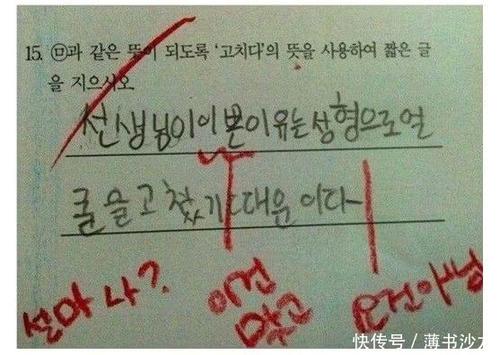 15. ㉤과 같은 뜻이 되도록 '고치다'의 뜻을 사용하여 짧은 글
을 지으시오
선생님이 이쁜이유는 성형으로 얼
굴을 고쳤기 때문이다
설마 나?
이건
맞고
요건아님
快传号/薄书沙